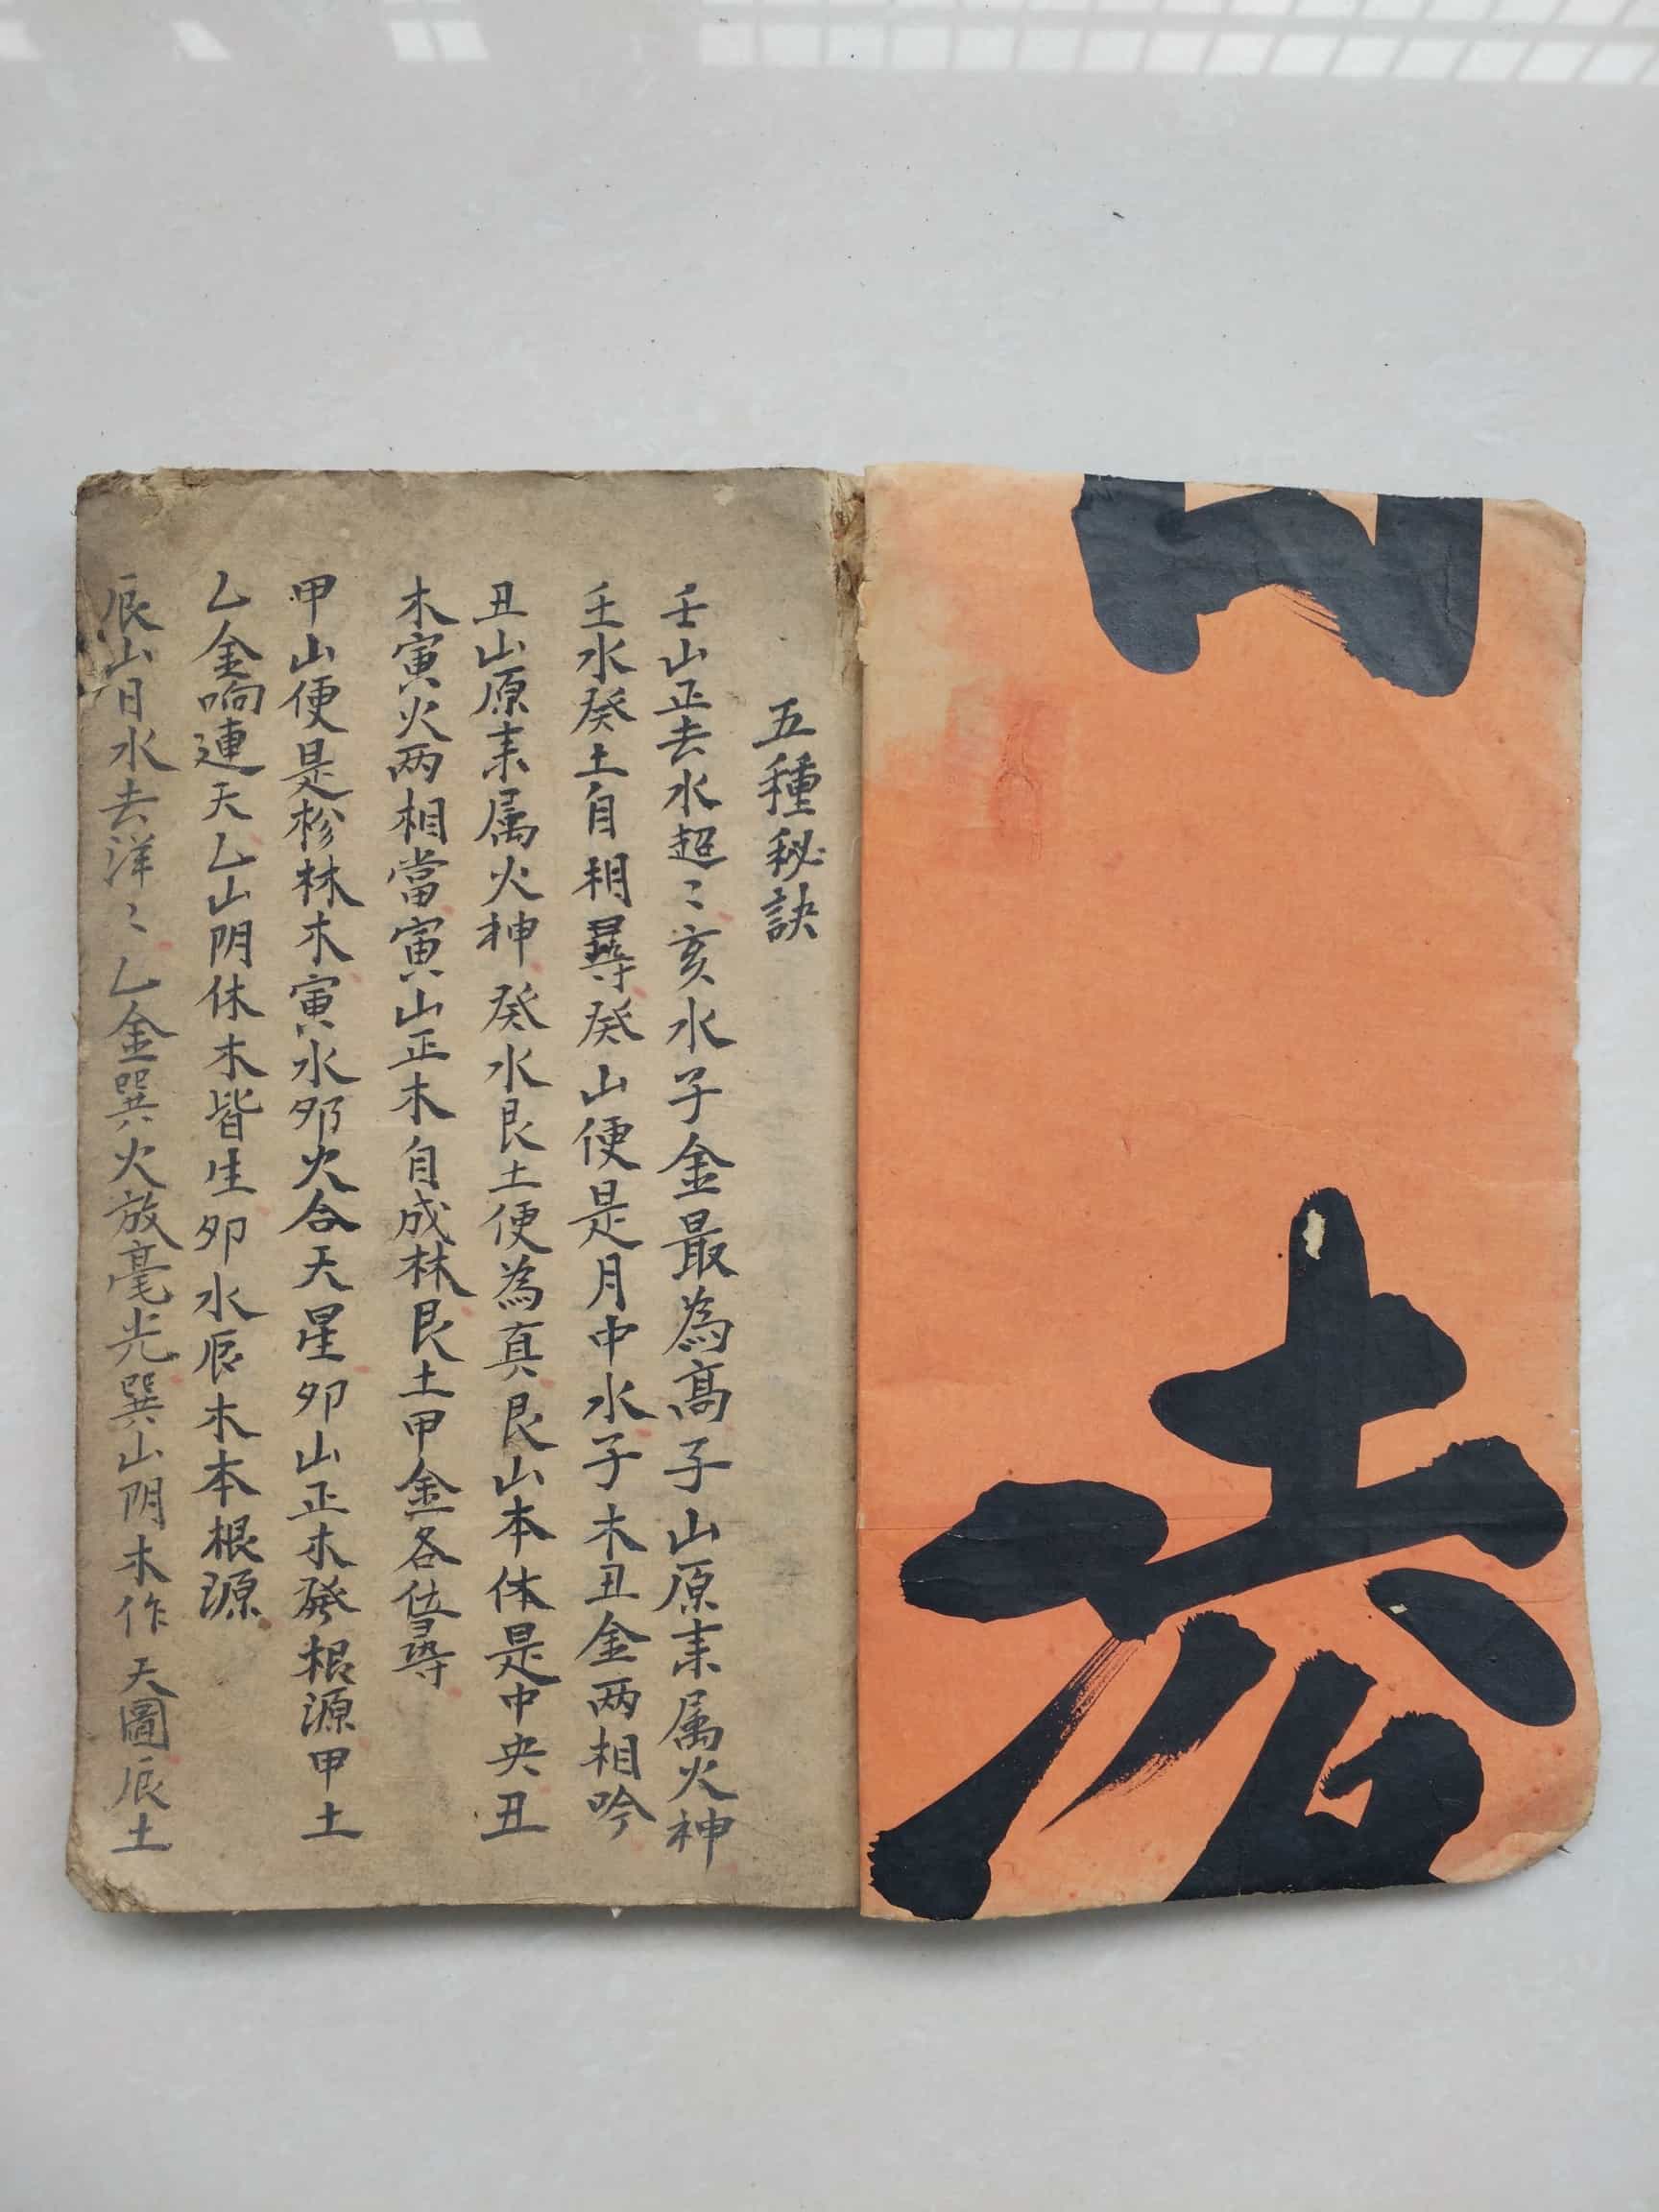 五種秘訣
壬山正去水超〻亥水子金最為高子山原来属火神
壬水癸土自相尋癸山便是月中水子木丑金两相吟
丑山原来属火神癸水艮土便為真艮山本体是中央丑
木寅火两相當寅山正木自成林艮土甲金各位尋
甲山便是杉林木寅水夘火合天星夘山正木發根源甲土
乙金响連天乙山阴休木皆生夘水辰木本根源
辰山日水去洋〻乙金巽火放毫光巽山阴木作天圖辰土